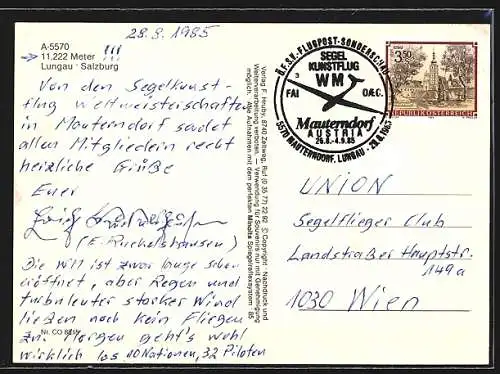 28.8.1985
A-5570
11.222 Meter !!!
Lungau · Salzburg
Von den Segelkunst-
flug Weltmeisterschaften
in Mauterndorf sendet
allen Mitgliedern recht
herzliche Grüße
Euer
(E. Ruckelshausen)
Die WM ist zwar lange schon
eröffnet, aber Regen und
turbulenter starker Wind
ließen noch kein Fliegen
zu. Morgen geht's wohl
wirklich los. 10 Nationen, 32 Piloten
Nr. CO
Verlag F. Hruby, 8740 Zeltweg, Ruf (0 35 77) 22 82 © Copyright · Nachdruck und
Weiterverarbeitung verboten. — Verwendung für Souvenirs nur mit Genehmigung
möglich. Alle Aufnahmen mit dem perfekten Minolta Spiegelreflexsystem 85
Ö.F.S.V.-FLUGPOST-SONDERSCHAU
SEGEL
KUNSTFLUG
WM
3
FAI
OAEC.
Mauterndorf
AUSTRIA
26.8.-4.9.85
5570 MAUTERNDORF, LUNGAU - 28.8.1985
3.50
REPUBLIK ÖSTERREICH
UNION
Segelflieger Club
Landstraßer Hauptstr.
149a
1030 Wien